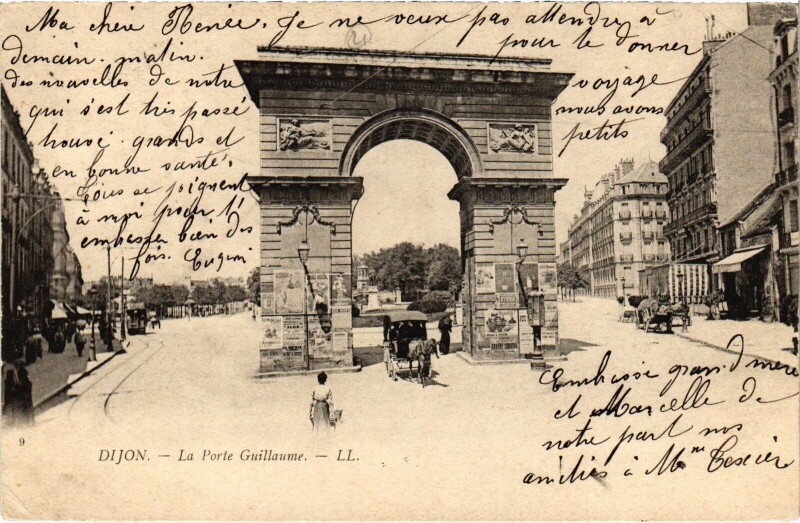 Ma chère Renée. Je ne veux pas attendre à
demain matin. pour te donner
des nouvelles de notre voyage
qui s'est très passé nous avons
trouvé grands et petits
en bonne santé.
Tous se joignent
à moi pour t'
embrasser bien des
fois. Eugèni
Embrasse grand mère
et Marcelle de
notre part nos
amitiés à Mme Texier
9
DIJON. — La Porte Guillaume. — LL.